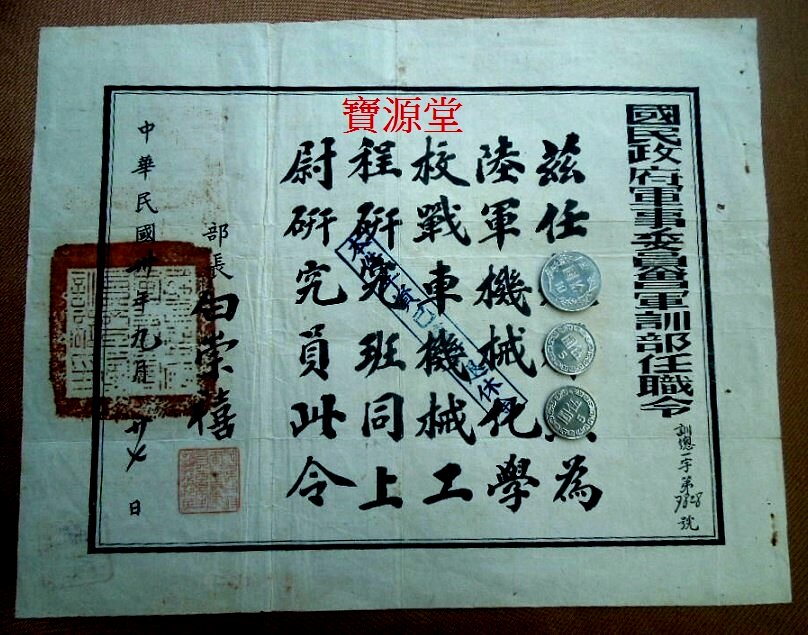 寶源堂
國民政府軍事委員會軍訓部任職令
訓總一字第號
茲任為
陸軍機械化學
校戰車機械工
程研究班同上
尉研究員此令
部長 白崇禧
中華民國卅年九月廿七日